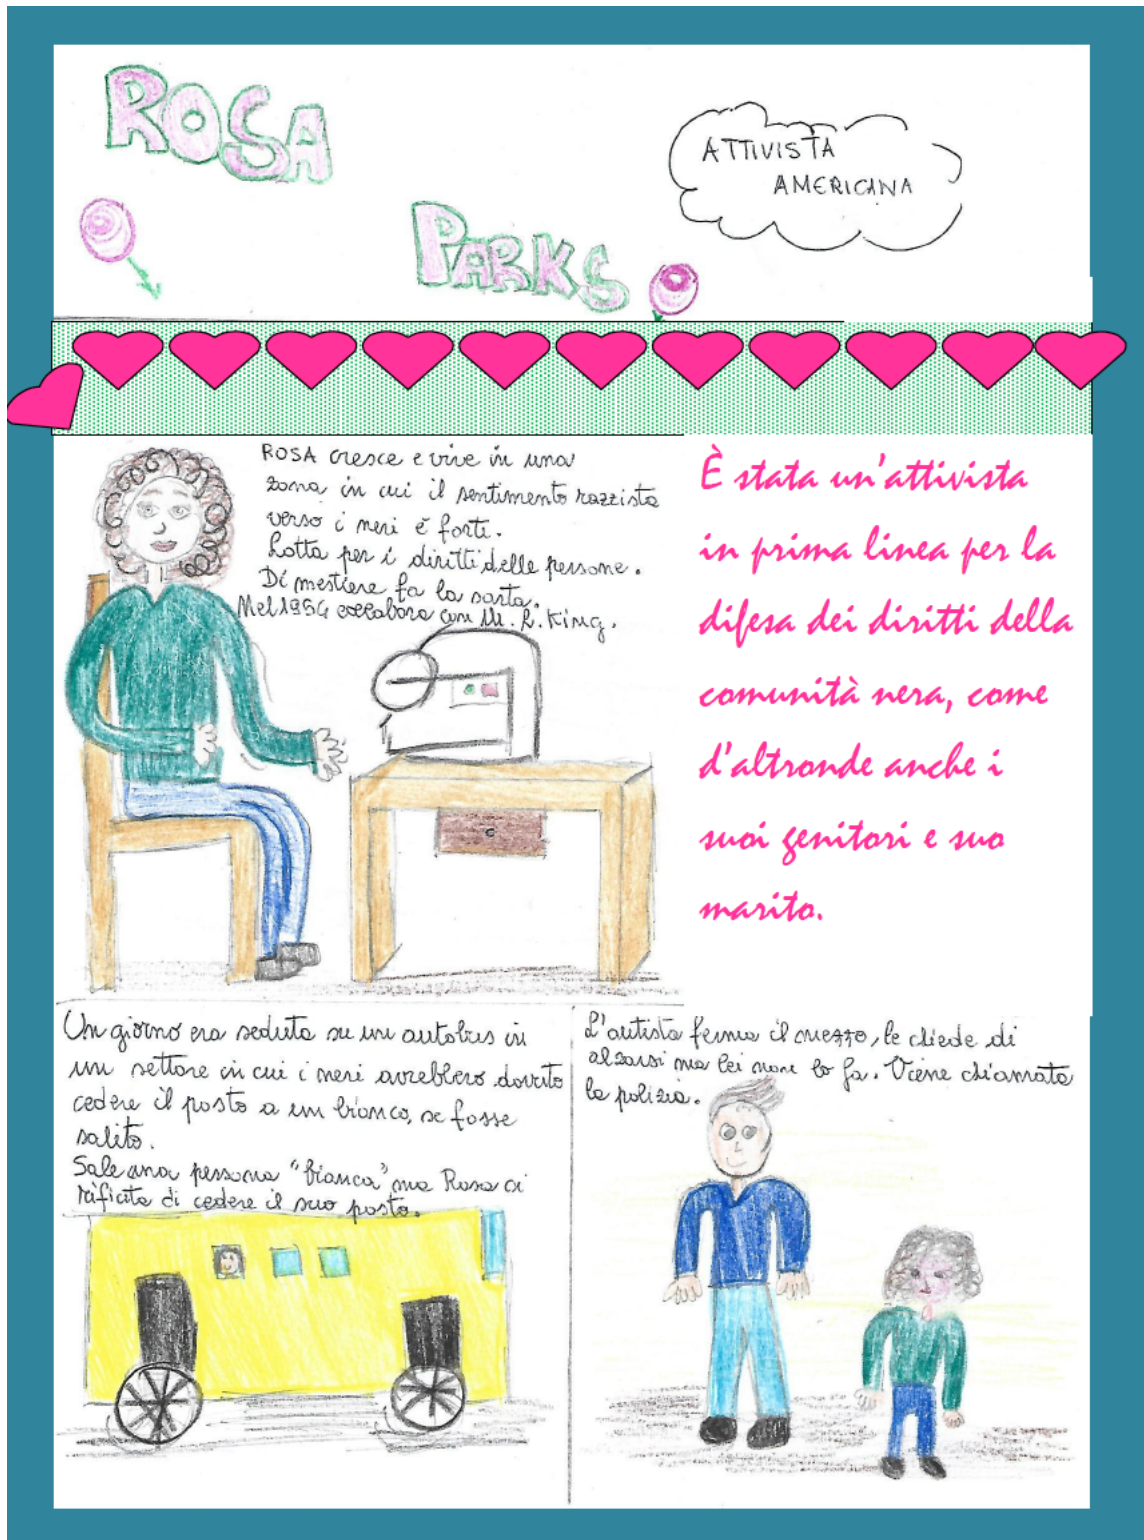 ROSA
PARKS
ATTIVISTA
AMERICANA
ROSA cresce e vive in una
zona in cui il sentimento razzista
verso i neri è forte.
Lotta per i diritti delle persone.
Di mestiere fa la sarta.
Nel 1954 collabora con M. L. King.
È stata un'attivista
in prima linea per la
difesa dei diritti della
comunità nera, come
d'altronde anche i
suoi genitori e suo
marito.
Un giorno era seduta su un autobus in
un settore in cui i neri avrebbero dovuto
cedere il posto a un bianco, se fosse
salito.
Sale una persona "bianca" ma Rosa si
rifiuta di cedere il suo posto.
L'autista ferma il mezzo, le chiede di
alzarsi ma lei non lo fa. Viene chiamata
la polizia.